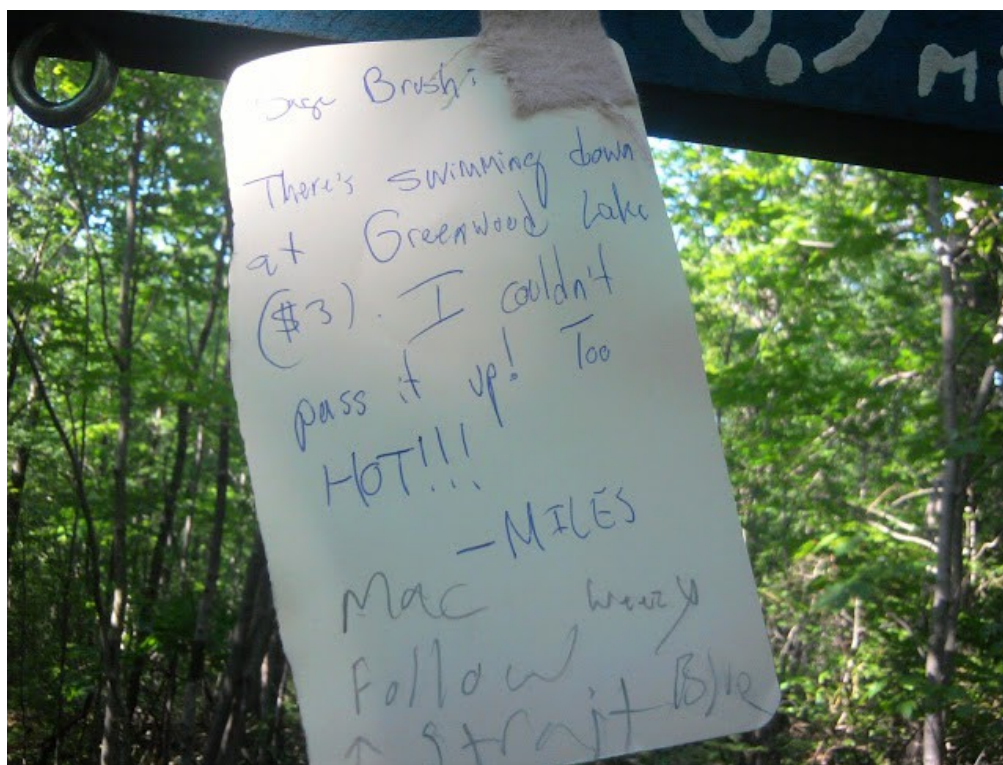 0.9 M
Sage Brush:
There's swimming down
at Greenwood Lake
($3). I couldn't
pass it up! Too
HOT!!!
-MILES
Mac weezy
Follow Blue
strait